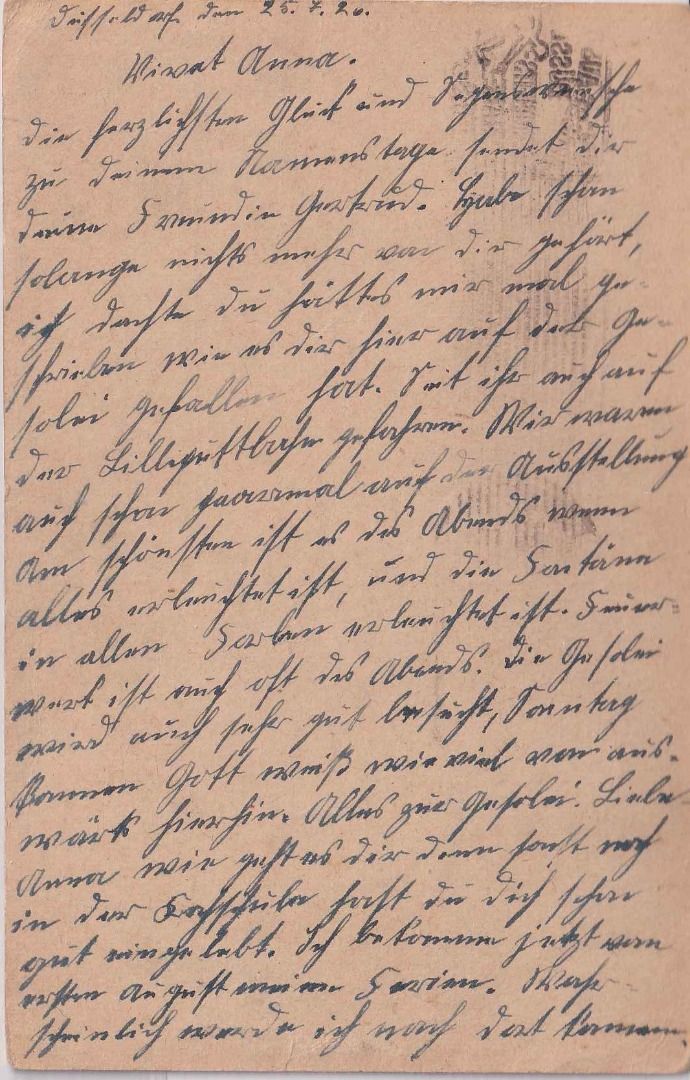 Düsseldorf den 25.7.26.
Vivat Anna.
Die herzlichsten Glück und Segenswünsche
zu deinem Namenstage sendet dir
deine Freundin Gertrud. Habe schon
solange nichts mehr von dir gehört,
ich dachte du hättes mir mal ge-
schrieben wie es dir hier auf der Ge-
solei gefallen hat. Seit ihr auch auf
der Lilliputtbahn gefahren. Wir waren
auch schon paarmal auf der Ausstellung
Am schönsten ist es des Abends wenn
alles erleuchtet ist, und die Fontäne
in allen Farben erleuchtet ist. Feuer-
werk ist auch oft des Abends. Die Gesolei
wird auch sehr gut besucht, Sonntag
kommen Gott weiß wieviel von aus-
wärts hierhin. Alles zur Gesolei. Liebe
Anna wie geht es dir denn sonst noch
in der Kochschule hast du dich schon
gut eingelebt. Ich bekomme jetzt vom
ersten August meine Ferien. Wahr-
scheinlich werde ich nach dort kommen.